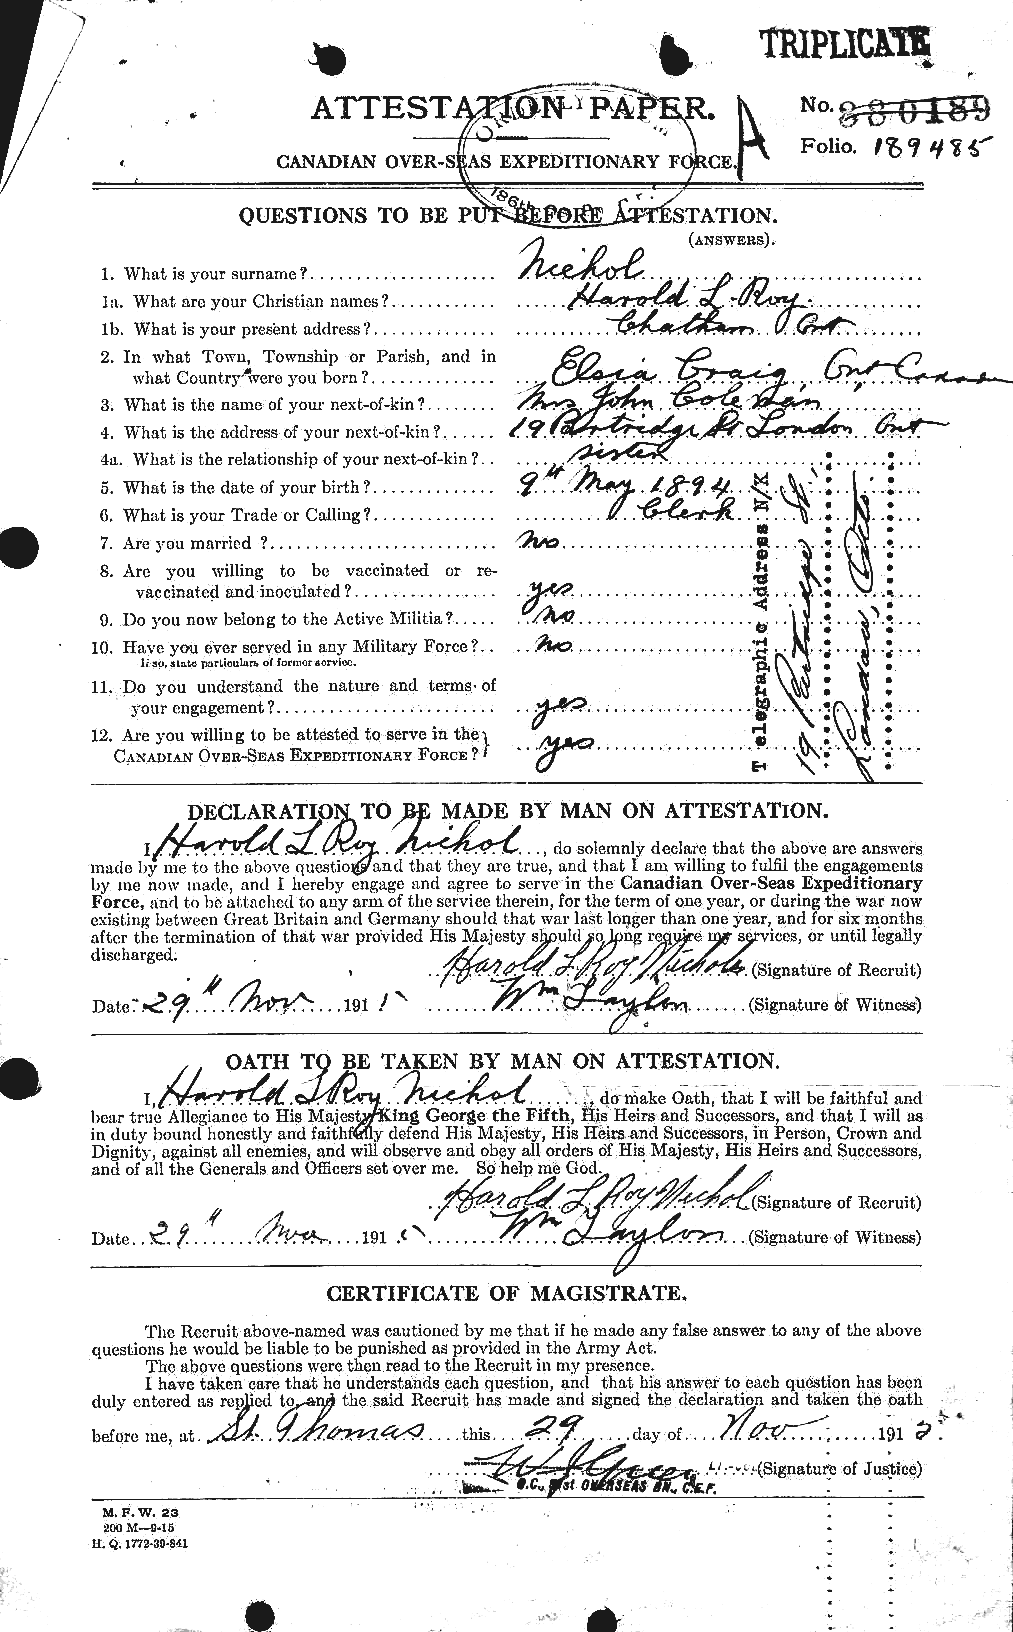 TRIPLICATE
ATTESTATION PAPER.
No. 880189
Folio. 189485
A
CANADIAN OVER-SEAS EXPEDITIONARY FORCE.
186th
QUESTIONS TO BE PUT BEFORE ATTESTATION.
(ANSWERS).
1. What is your surname? Nichol
1a. What are your Christian names? Harold L. Roy
1b. What is your present address? Chatham Ont
2. In what Town, Township or Parish, and in
what Country were you born? Elsia Craig, Ont Canada
3. What is the name of your next-of-kin? Mrs John Coleman
4. What is the address of your next-of-kin? 19 Partridge St London Ont
4a. What is the relationship of your next-of-kin? sister
5. What is the date of your birth? 9th May 1894
6. What is your Trade or Calling? Clerk
7. Are you married ? no
8. Are you willing to be vaccinated or re-
vaccinated and inoculated? yes
9. Do you now belong to the Active Militia? no
10. Have you ever served in any Military Force? no
If so, state particulars of former service.
11. Do you understand the nature and terms of
your engagement? yes
12. Are you willing to be attested to serve in the
CANADIAN OVER-SEAS EXPEDITIONARY FORCE? yes
Telegraphic Address N/K
19 Partridge St.,
London, Ont.
DECLARATION TO BE MADE BY MAN ON ATTESTATION.
I, Harold L Roy Nichol, do solemnly declare that the above are answers
made by me to the above questions and that they are true, and that I am willing to fulfil the engagements
by me now made, and I hereby engage and agree to serve in the Canadian Over-Seas Expeditionary
Force, and to be attached to any arm of the service therein, for the term of one year, or during the war now
existing between Great Britain and Germany should that war last longer than one year, and for six months
after the termination of that war provided His Majesty should so long require my services, or until legally
discharged.
Harold L Roy Nichols (Signature of Recruit)
Date 29th Nov 1915 Wm Taylor (Signature of Witness)
OATH TO BE TAKEN BY MAN ON ATTESTATION.
I, Harold L Roy Nichol, do make Oath, that I will be faithful and
bear true Allegiance to His Majesty King George the Fifth, His Heirs and Successors, and that I will as
in duty bound honestly and faithfully defend His Majesty, His Heirs and Successors, in Person, Crown and
Dignity, against all enemies, and will observe and obey all orders of His Majesty, His Heirs and Successors,
and of all the Generals and Officers set over me. So help me God.
Harold L Roy Nichol (Signature of Recruit)
Date 29th Nov 1915 Wm Taylor (Signature of Witness)
CERTIFICATE OF MAGISTRATE.
The Recruit above-named was cautioned by me that if he made any false answer to any of the above
questions he would be liable to be punished as provided in the Army Act.
The above questions were then read to the Recruit in my presence.
I have taken care that he understands each question, and that his answer to each question has been
duly entered as replied to, and the said Recruit has made and signed the declaration and taken the oath
before me, at St. Thomas this 29 day of Nov 1915.
(Signature of Justice)
O.C., 91st OVERSEAS BN., C.E.F.
M. F. W. 23
200 M—9-15
H. Q. 1772-39-841